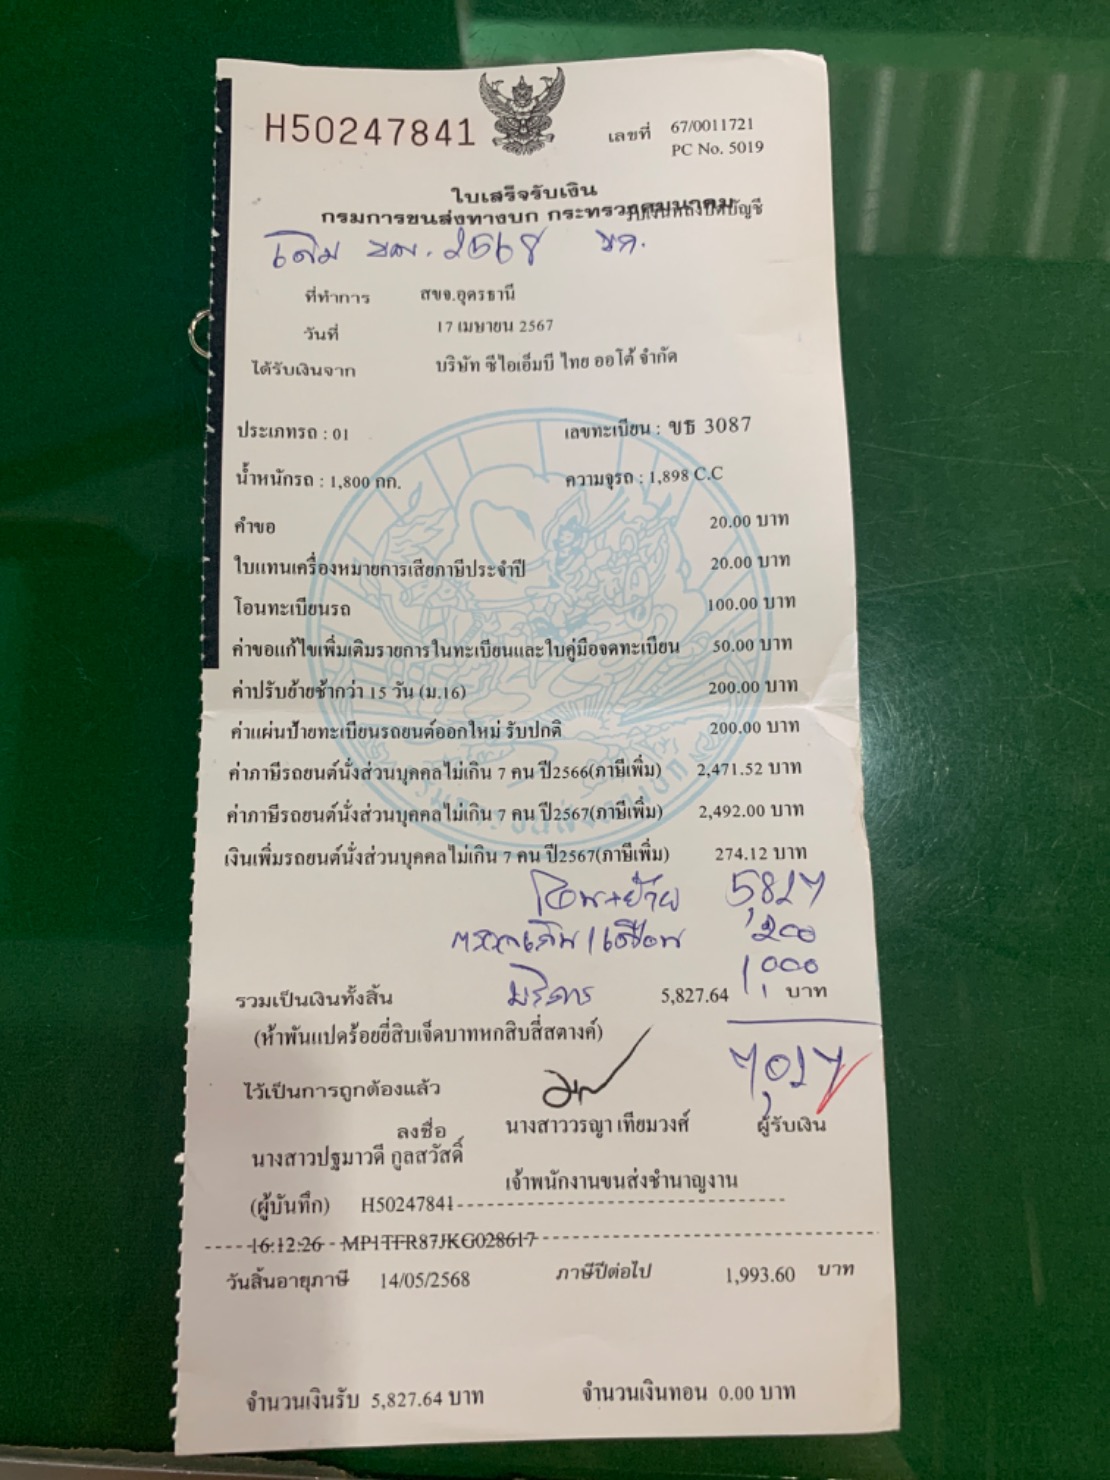 H50247841
เลขที่ 67/0011721
PC No. 5019
ใบเสร็จรับเงิน
กรมการขนส่งทางบก กระทรวงคมนาคม
รับเงินหลังปิดบัญชี
เดิม 2568
ที่ทำการ สขจ.อุดรธานี
วันที่ 17 เมษายน 2567
ได้รับเงินจาก บริษัท ซีไอเอ็มบี ไทย ออโต้ จำกัด
ประเภทรถ : 01 เลขทะเบียน : ขธ 3087
น้ำหนักรถ : 1,800 กก. ความจุรถ : 1,898 C.C
คำขอ 20.00 บาท
ใบแทนเครื่องหมายการเสียภาษีประจำปี 20.00 บาท
โอนทะเบียนรถ 100.00 บาท
ค่าขอแก้ไขเพิ่มเติมรายการในทะเบียนและใบคู่มือจดทะเบียน 50.00 บาท
ค่าปรับย้ายช้ากว่า 15 วัน (ม.16) 200.00 บาท
ค่าแผ่นป้ายทะเบียนรถยนต์ออกใหม่ รับปกติ 200.00 บาท
ค่าภาษีรถยนต์นั่งส่วนบุคคลไม่เกิน 7 คน ปี2566(ภาษีเพิ่ม) 2,471.52 บาท
ค่าภาษีรถยนต์นั่งส่วนบุคคลไม่เกิน 7 คน ปี2567(ภาษีเพิ่ม) 2,492.00 บาท
เงินเพิ่มรถยนต์นั่งส่วนบุคคลไม่เกิน 7 คน ปี2567(ภาษีเพิ่ม) 274.12 บาท
โอน+ย้าย 5,827
200
บริการ 1,000
รวมเป็นเงินทั้งสิ้น 5,827.64 บาท
(ห้าพันแปดร้อยยี่สิบเจ็ดบาทหกสิบสี่สตางค์)
7,027
ไว้เป็นการถูกต้องแล้ว
ลงชื่อ นางสาววรญา เทียมวงศ์ ผู้รับเงิน
นางสาวปฐมาวดี กูลสวัสดิ์
เจ้าพนักงานขนส่งชำนาญงาน
(ผู้บันทึก) H50247841
16:12:26 MP1TFR87JKG028617
วันสิ้นอายุภาษี 14/05/2568 ภาษีปีต่อไป 1,993.60 บาท
จำนวนเงินรับ 5,827.64 บาท จำนวนเงินทอน 0.00 บาท